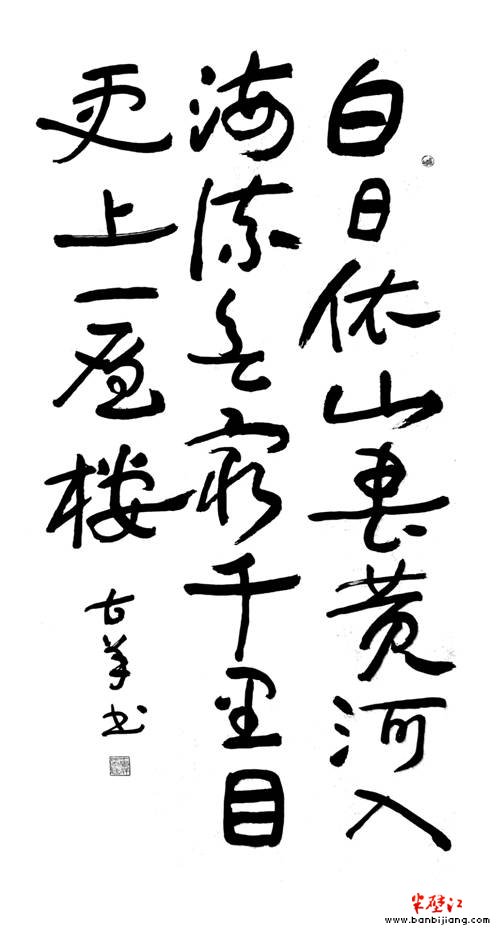 白日依山盡黄河入
海流欲窮千里目
更上一層楼
古羊书
半壁江
www.banbijiang.com